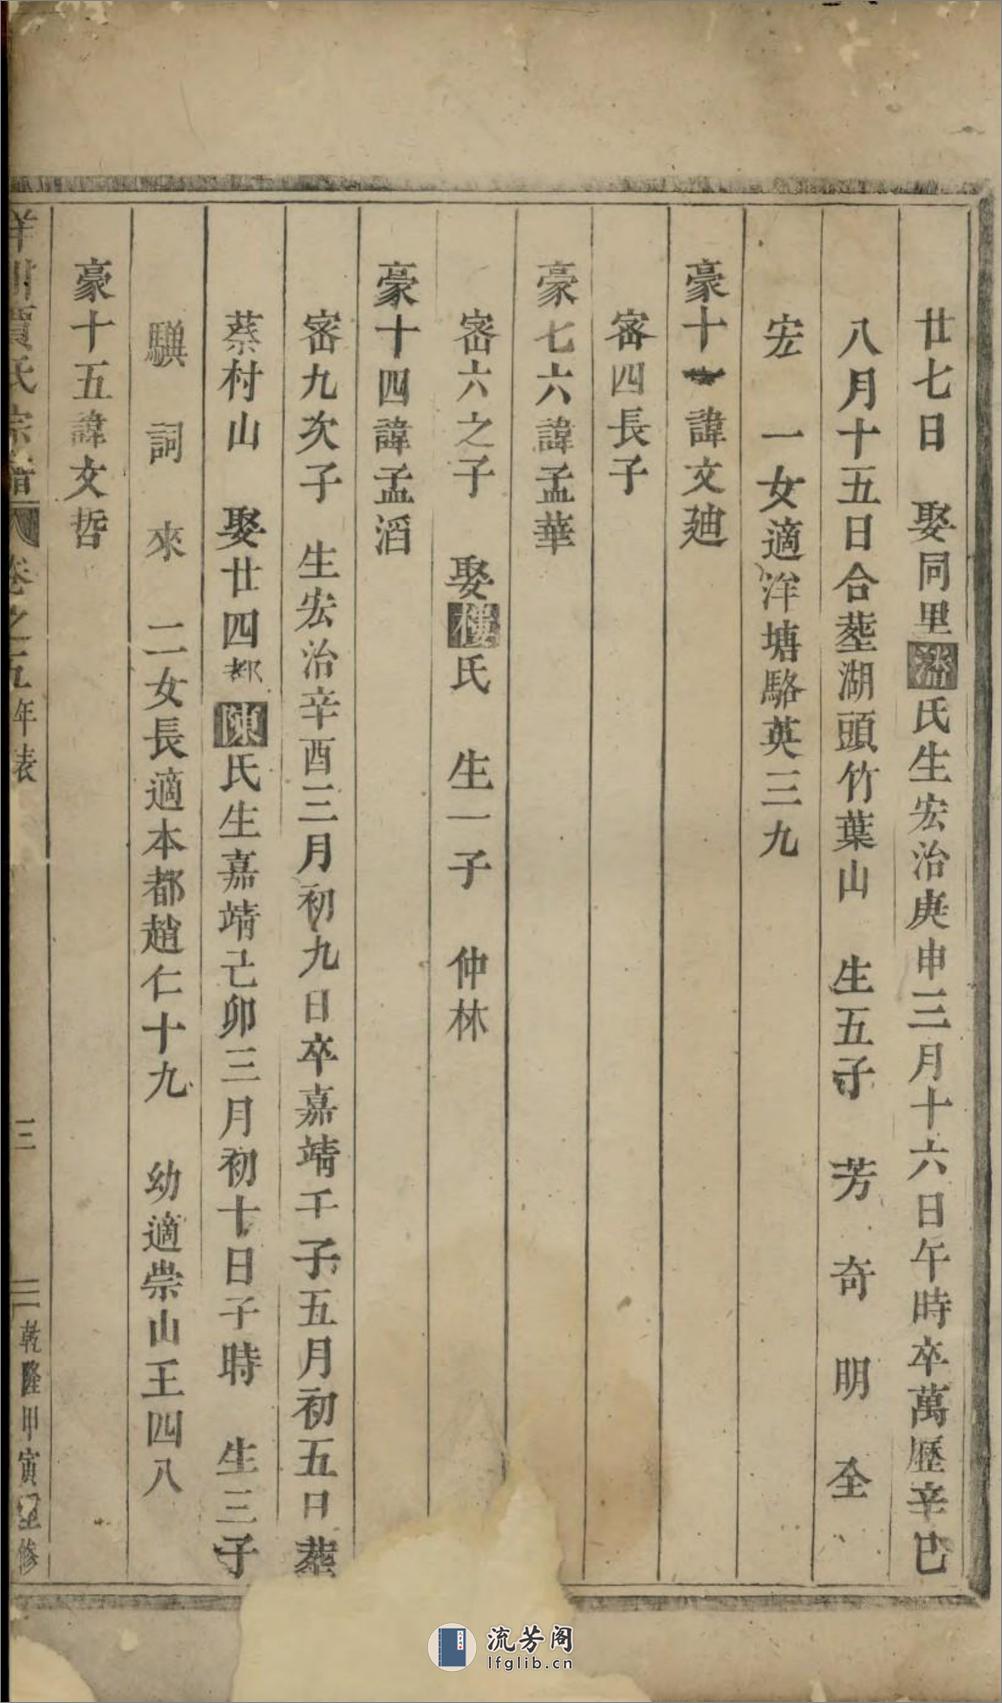 廿七日　娶同里潘氏生宏治庚申三月十六日午時卒萬歷辛巳
八月十五日合塟湖頭竹葉山　生五子　芳　奇　明　全
宏　一女適泮塘駱英三九
豪十一諱文廸
密四長子
豪七六諱孟華
密六之子　娶樓氏　生一子　仲林
豪十四諱孟滔
密九次子　生宏治辛酉三月初九日卒嘉靖千子五月初五日塟
蔡村山　娶廿四都陳氏生嘉靖己卯三月初十日子時　生三子
驥　詞　來　二女長適本都趙仁十九　幼適崇山王四八
豪十五諱文哲
賈氏宗譜　卷之五　年表　三　乾隆甲寅重修
流芳阁
lfglib.cn